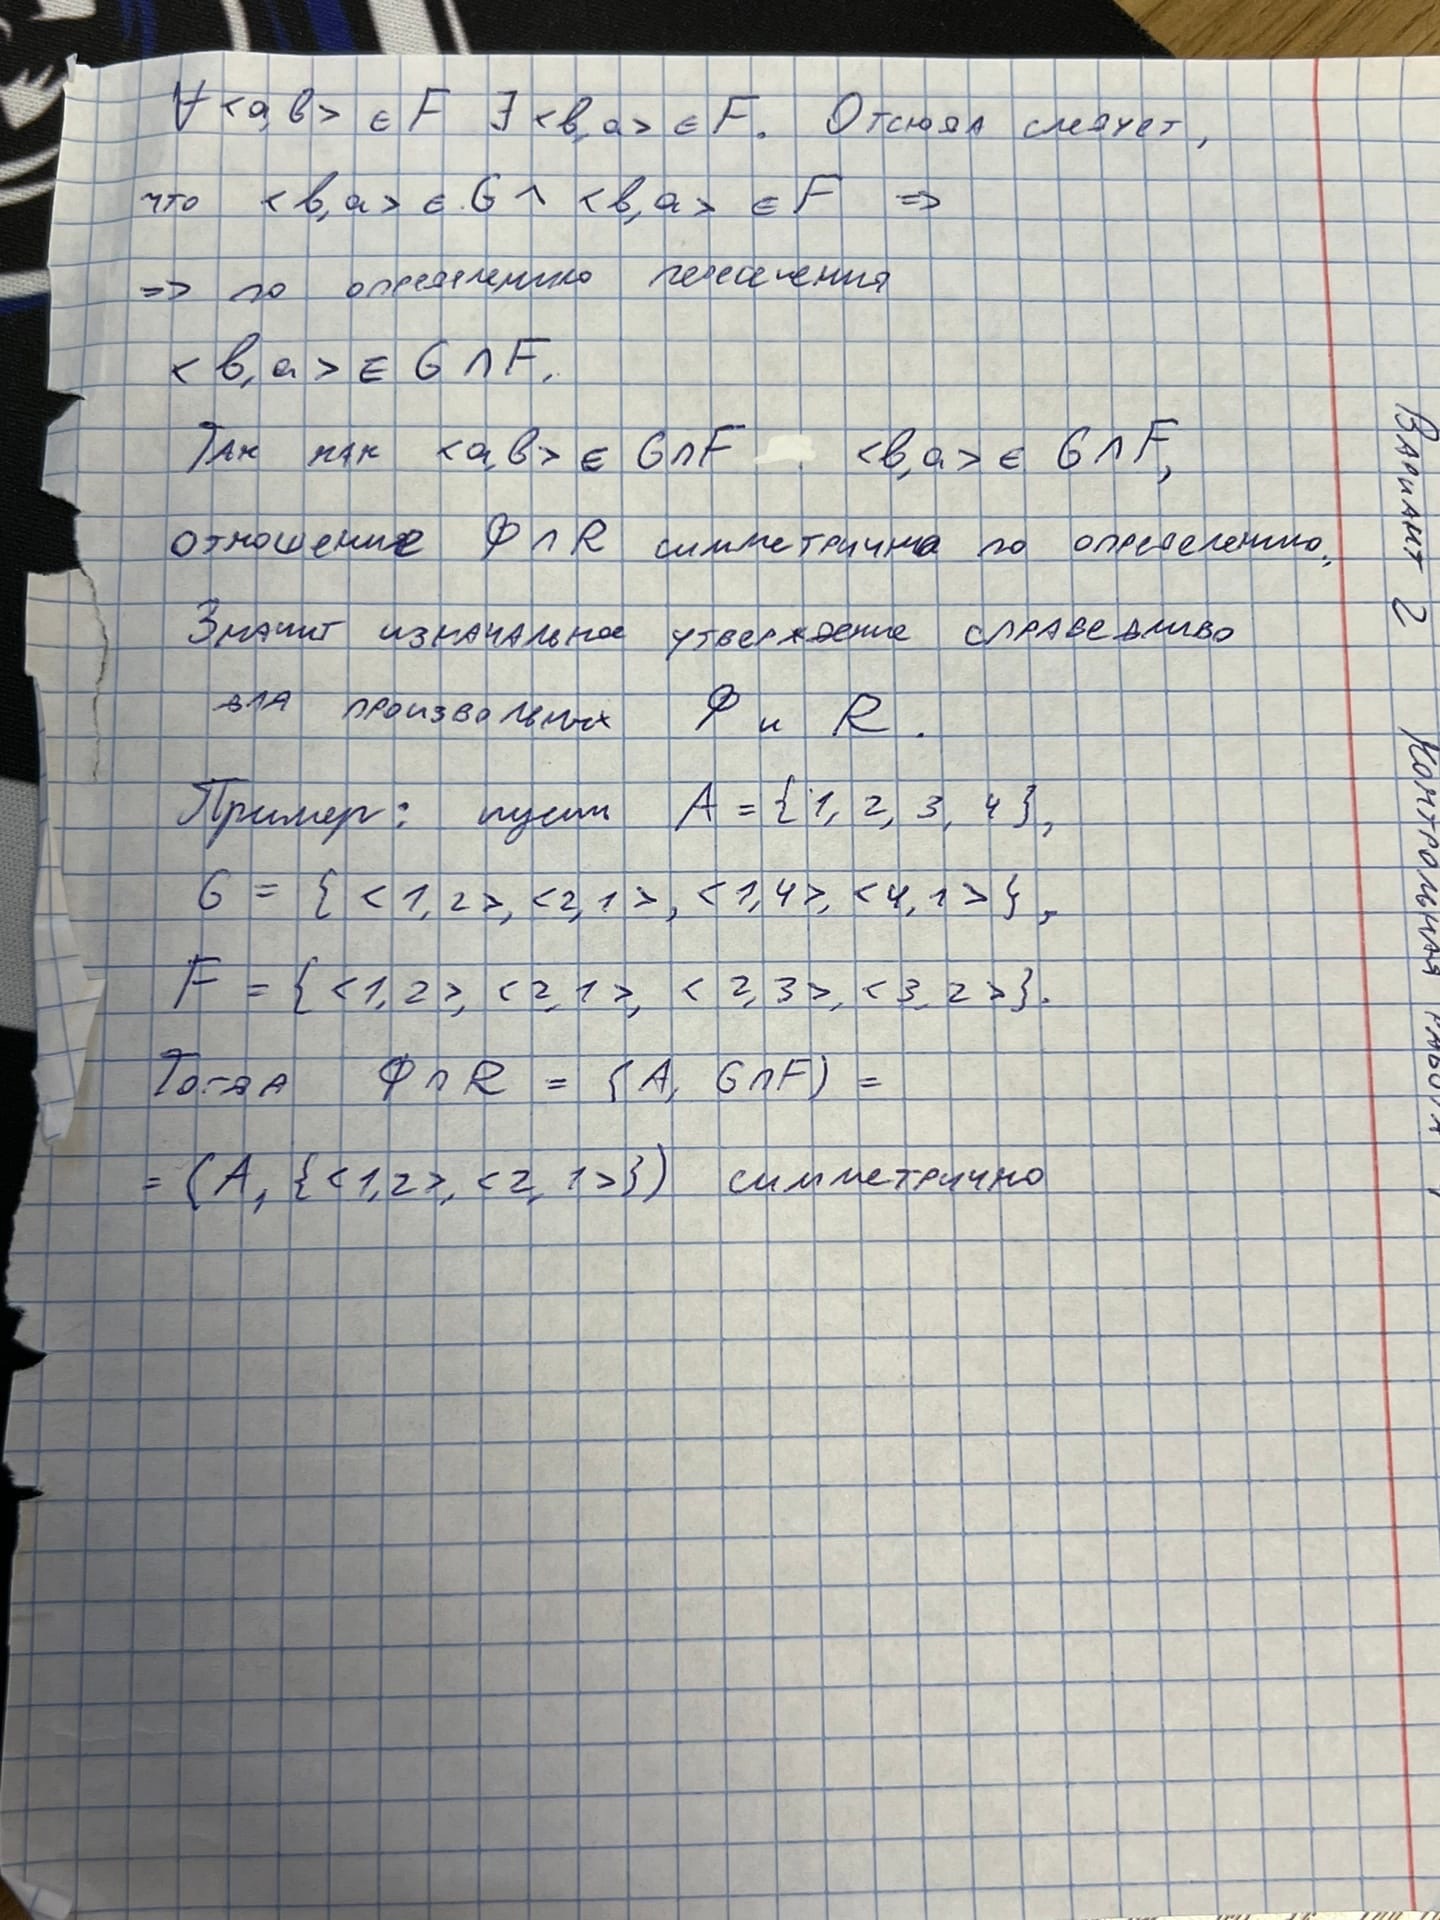 ∀ <a,b> ∈ F ∃ <b,a> ∈ F. Отсюда следует,
что <b,a> ∈ G ∧ <b,a> ∈ F ⇒
⇒ по определению пересечения
<b,a> ∈ G ∩ F.
Так как <a,b> ∈ G∩F <b,a> ∈ G∩F,
отношение Φ∩R симметрично по определению.
Значит изначальное утверждение справедливо
для произвольных Φ и R.
Пример: пусть A = {1, 2, 3, 4},
G = {<1,2>, <2,1>, <1,4>, <4,1>},
F = {<1,2>, <2,1>, <2,3>, <3,2>}.
Тогда Φ∩R = (A, G∩F) =
= (A, {<1,2>, <2,1>}) симметрично
Вариант 2 Контрольная работа 1